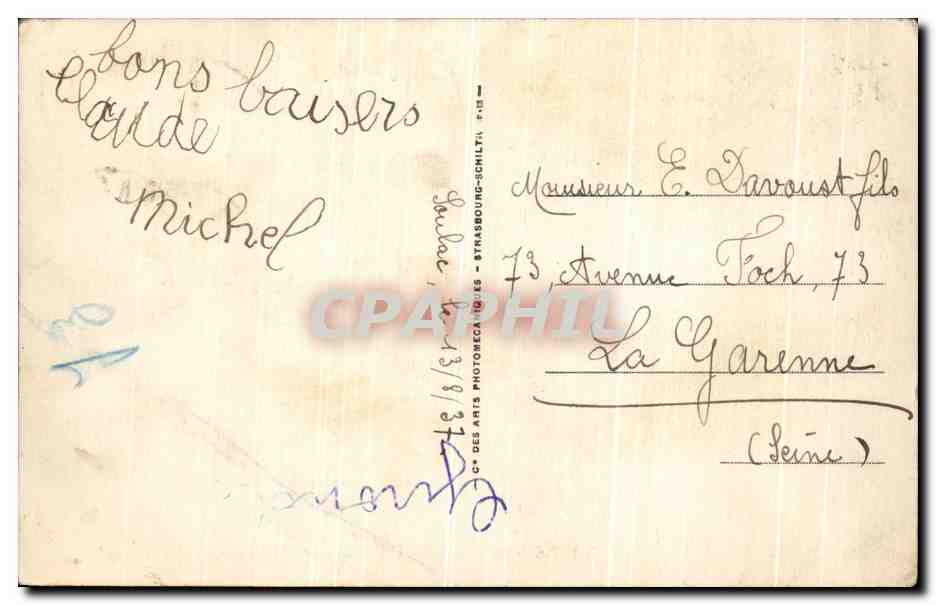 bons baisers
Claude
Michel
Soulac, le 13/8/37
Cie DES ARTS PHOTOMECANIQUES - STRASBOURG-SCHILTIG
Monsieur E. Davoust fils
73, Avenue Foch, 73
La Garenne
(Seine)
CPAPHIL